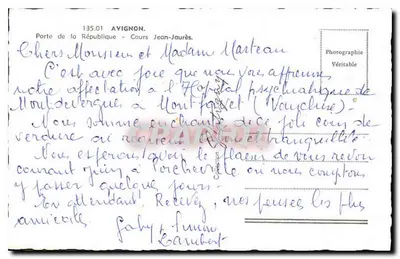 135.01 AVIGNON.
Porte de la République - Cours Jean-Jaurès.
Photographie
Véritable
Chers Monsieur et Madame Marteau
C'est avec joie que nous vous
notre affectation à l'Hôpital psychiatrique de
Montdevergues à Montfavet (Vaucluse).
Nous sommes enchantés de ce joli coin de
verdure où
Nous espérons avoir le plaisir de vous revoir
courant juin à où nous comptons
y passer quelques jours.
En attendant Recevez, nos pensées les plus
amicales
Gaby & Simon
Lambert